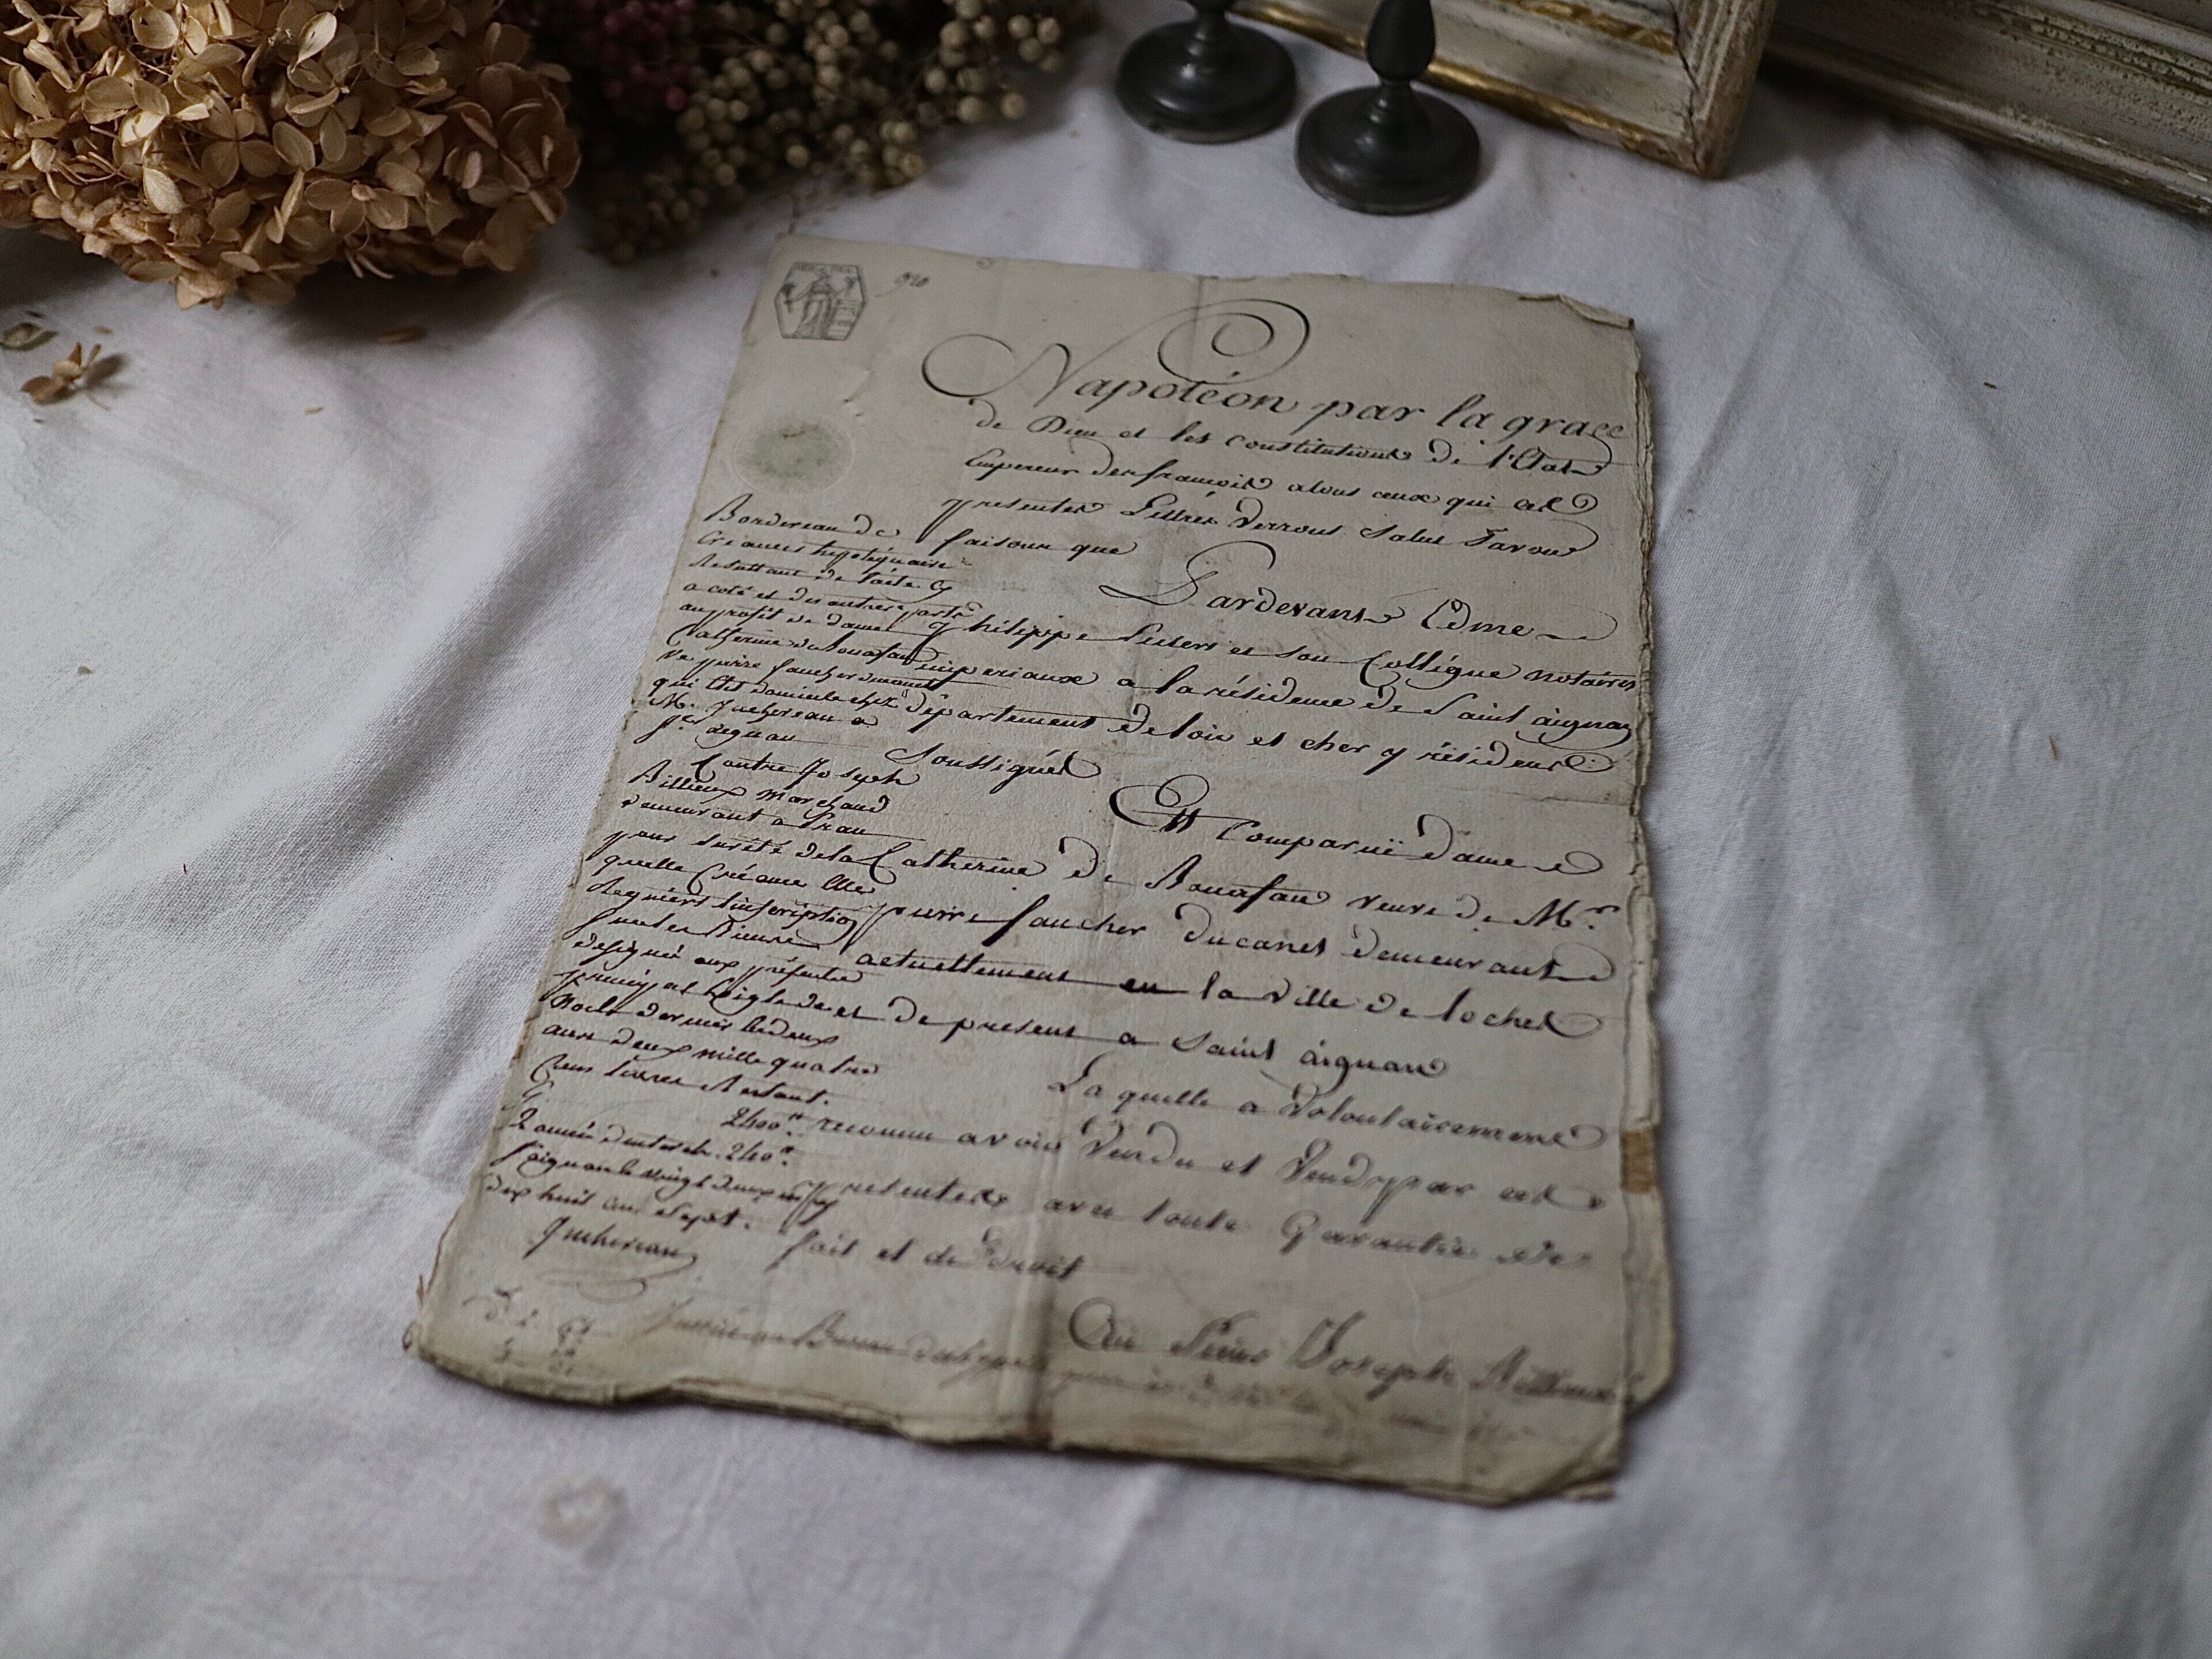 Napoléon par la grace
de Dieu et les constitutions de l'Etat
Empereur des françois atous ceux qui ces
presentes Lettres verront Salut Savoir
faisons que
Pardevant Edme
Philippe et son Collégue notaires
imperiaux a la résidence de Saint aignan
département deloir et cher y résident
Soussignés
Est Comparuë dame
Catherine de Bonafau veuve de Mr.
pierre faucher ducanet demeurant
actuellement en la ville de loches
et de present a Saint aignan
Laquelle a volontairement
reconnu avoir Vendu et Vend par ces
presentes avec toute Garantie de
fait et de droit
Au Sieur Joseph Billieux
Bordereau de
Créances hypotéquaire
Resultant de l'acte cy
a coté et des autres parts
au profit de dame
Catherine de Bonafau
Ve pierre faucher ducanet
qui Elit domicile chez
M. Juchereau a
St. aignan
Contre Joseph
Billieux marchand
demeurant a
pour sureté dela
quelle Créance Elle
Requiert linscription
sur les Biens
désigné aux présentes
principal Exigible
deux
ans deux mille quatre
Cens livres Restant.
2400tt.
2 année dinterets. 240tt.
St aignan le vingt deux
dix huit cent Sept.
Juchereau